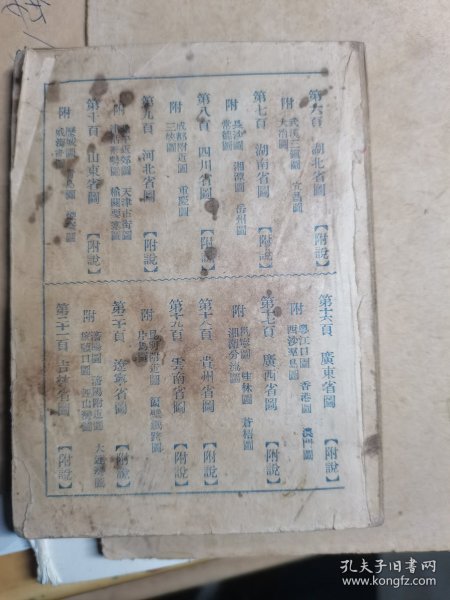 第六頁 湖北省圖 【附說】
附 武漢三鎮圖 宜昌圖
大冶圖
第七頁 湖南省圖 【附說】
附 長沙圖 湘潭圖 岳州圖
常德圖
第八頁 四川省圖 【附說】
附 成都附近圖 重慶圖
三峽圖
第九頁 河北省圖 【附說】
附 近郊圖 天津市街圖
第十頁 山東省圖 【附說】
附 歷城圖 青島圖
威海衞
第十六頁 廣東省圖 【附說】
附 粵江口圖 香港圖 澳門圖
西沙羣島圖
第十七頁 廣西省圖 【附說】
附 邕寧圖 桂林圖 蒼梧圖
湘灕分流圖
第十八頁 貴州省圖 【附說】
第十九頁 雲南省圖 【附說】
附 昆明附近圖 滇越鐵路圖
片馬圖
第二十頁 遼寧省圖 【附說】
附 瀋陽圖 瀋陽附近圖 大連灣圖
第二十一頁 吉林省圖 【附說】
孔夫子旧书网
www.kongfz.com